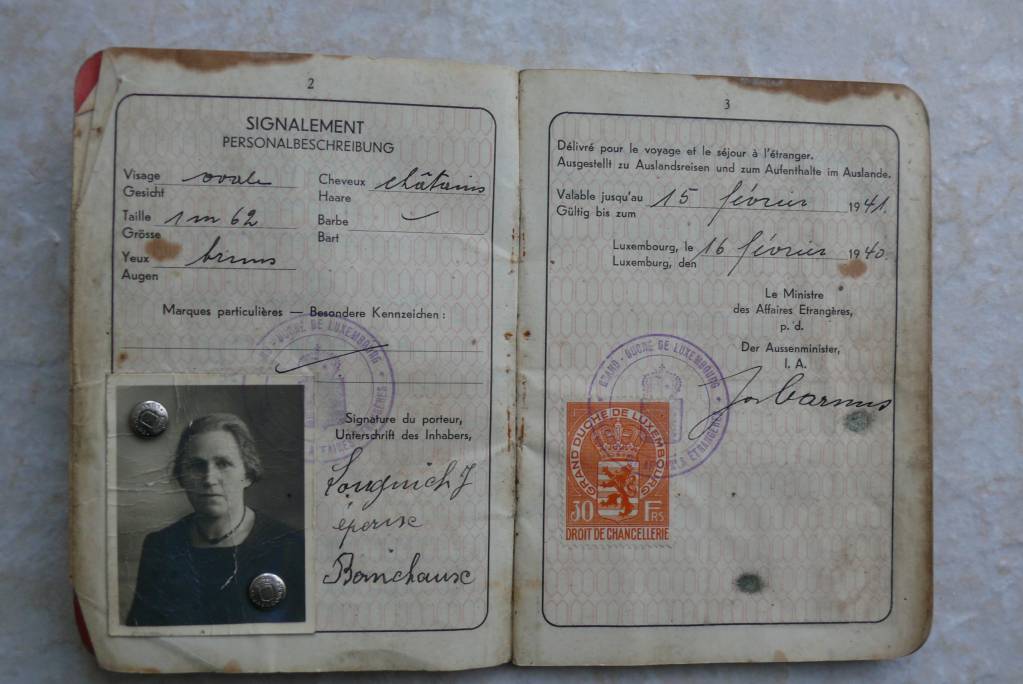 2
SIGNALEMENT
PERSONALBESCHREIBUNG
Visage ovale
Gesicht
Cheveux châtains
Haare
Taille 1 m 62
Grösse
Barbe
Bart
Yeux bruns
Augen
Marques particulières — Besondere Kennzeichen :
GRAND-DUCHÉ DE LUXEMBOURG
AFFAIRES ÉTRANGÈRES
Signature du porteur,
Unterschrift des Inhabers,
J
3
Délivré pour le voyage et le séjour à l'étranger.
Ausgestellt zu Auslandsreisen und zum Aufenthalte im Auslande.
Valable jusqu'au 15 février 1941.
Gültig bis zum
Luxembourg, le 16 février 1940.
Luxemburg, den
Le Ministre
des Affaires Etrangères,
p. d.
Der Aussenminister,
I. A.
GRAND-DUCHÉ DE LUXEMBOURG
ÉTRANGÈRES
GRAND DUCHE DE LUXEMBOURG
30 FRS
DROIT DE CHANCELLERIE